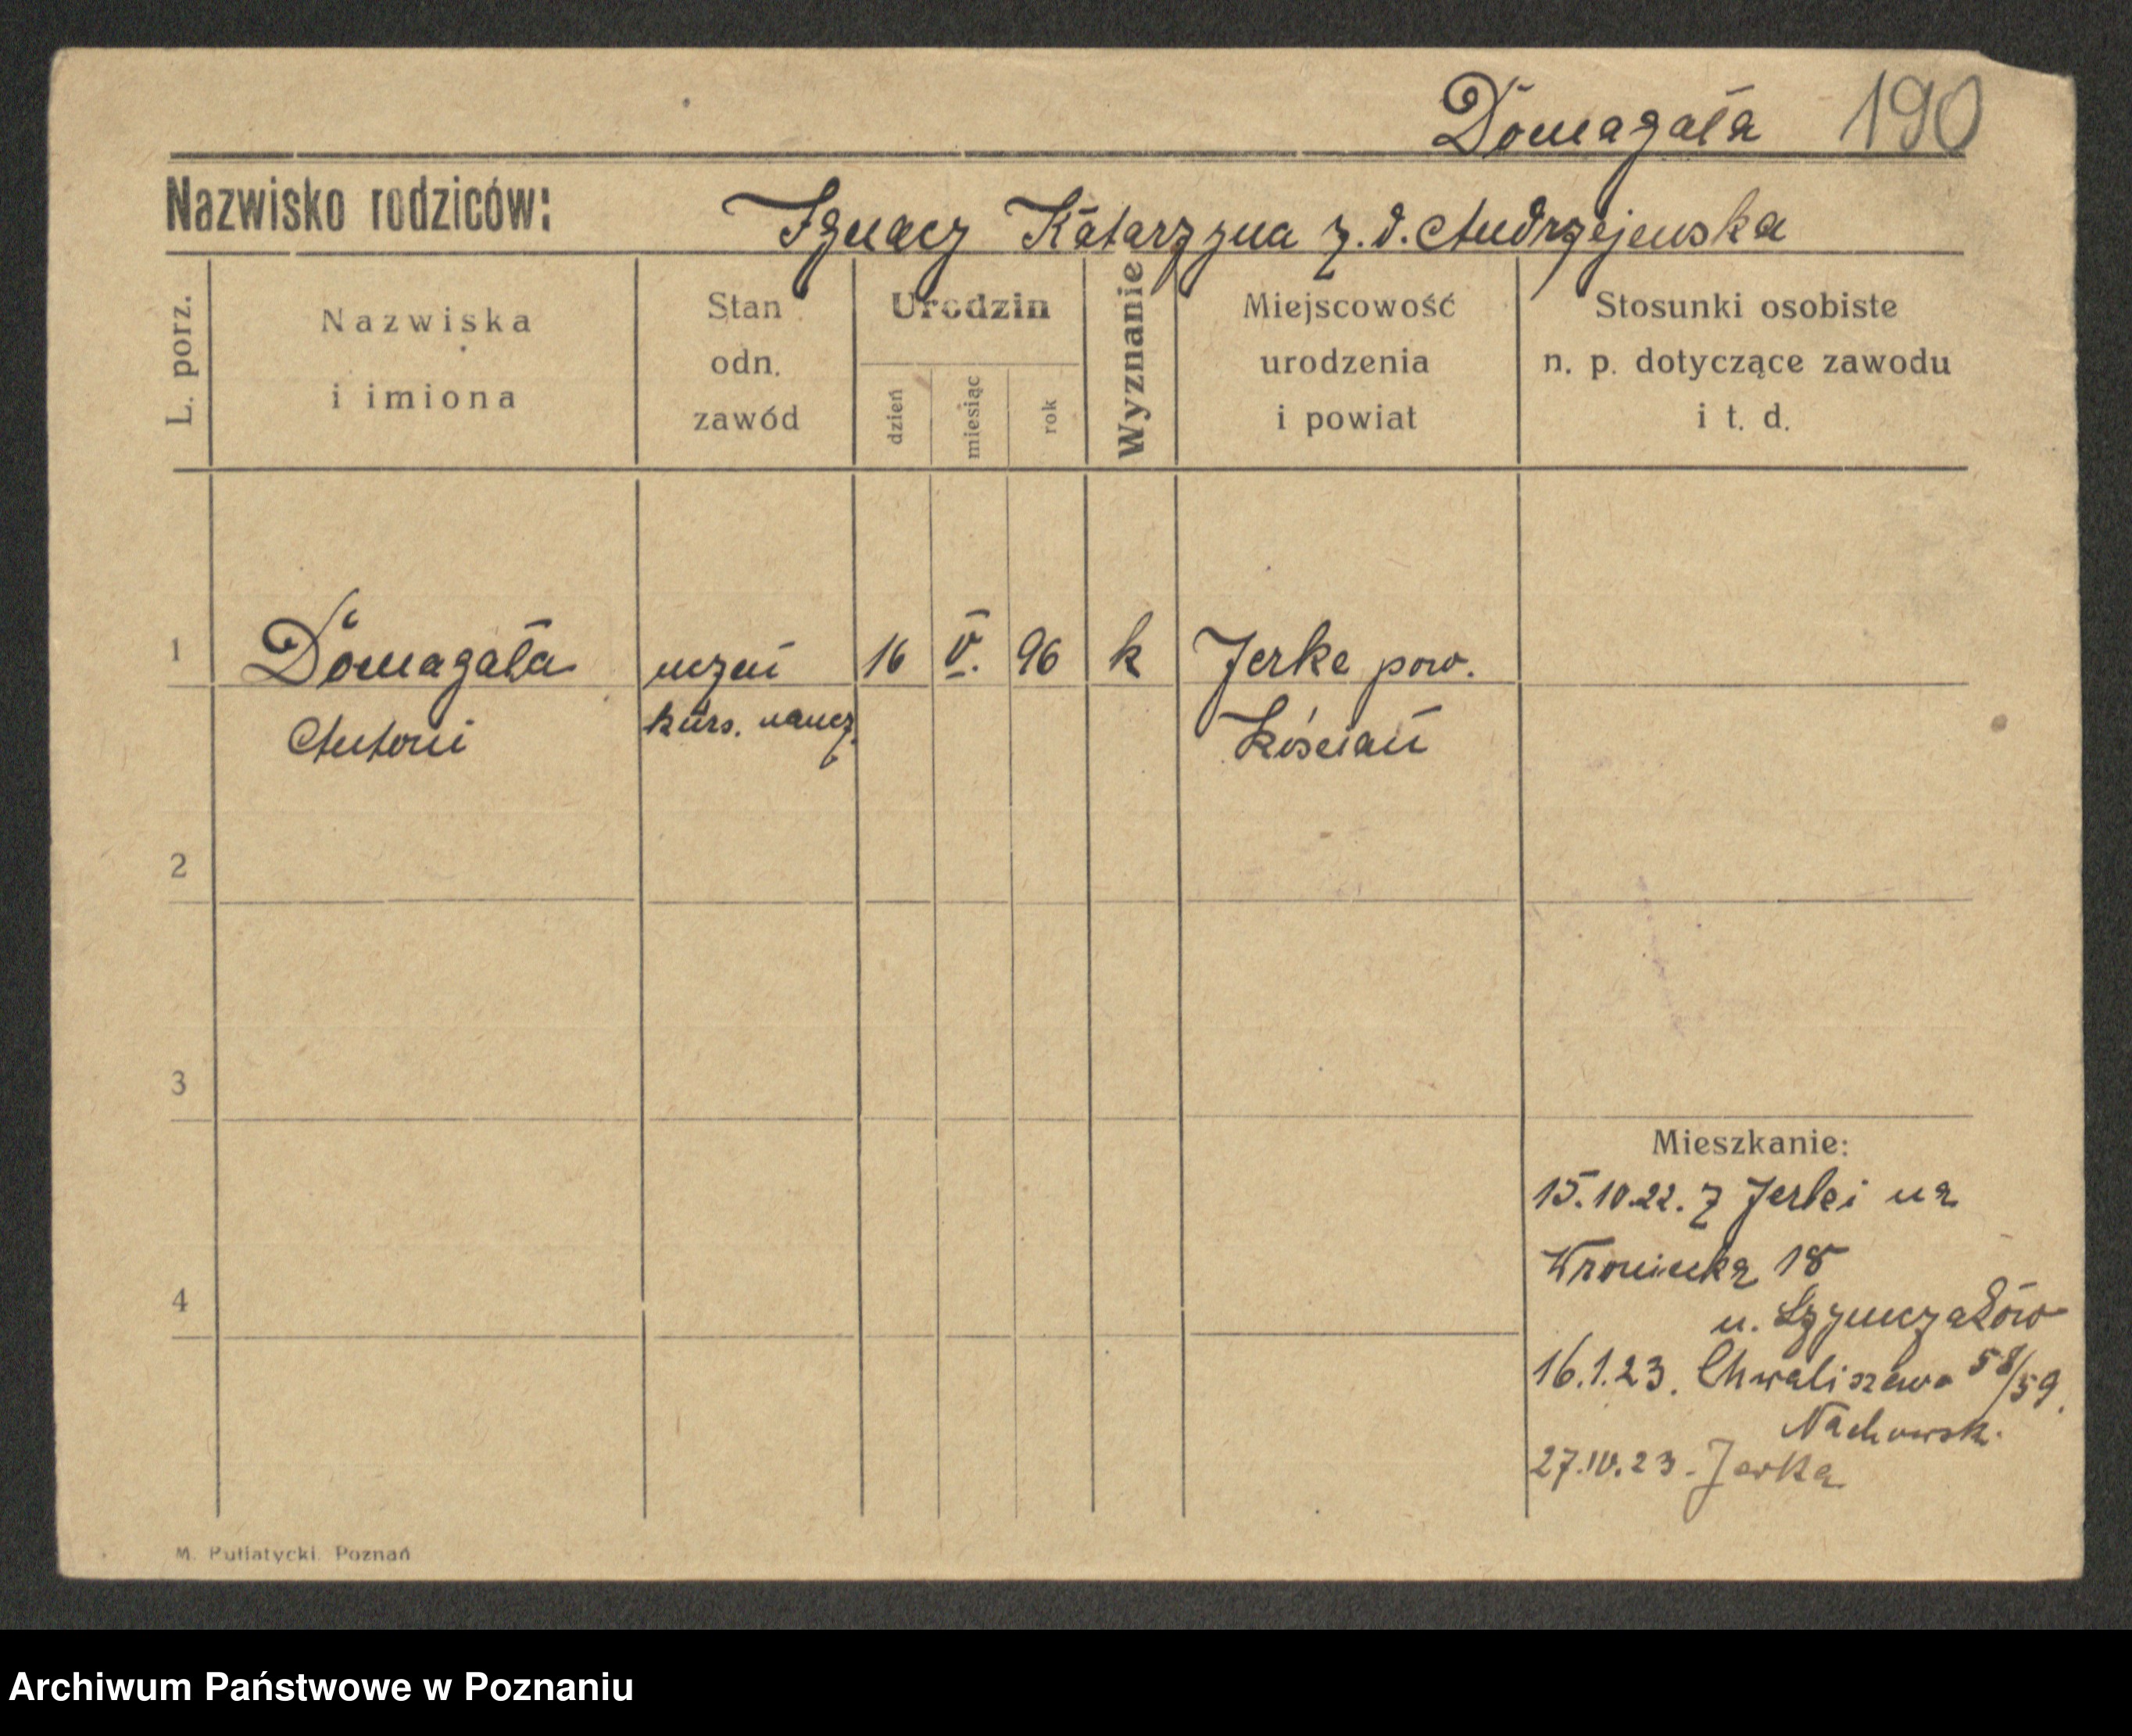 Domagała 190
Nazwisko rodziców: Ignacy Katarzyna z. d. Andrzejewska
L. porz.
Nazwiska
i imiona
Stan
odn.
zawód
Urodzin
dzień
miesiąc
rok
Wyznanie
Miejscowość
urodzenia
i powiat
Stosunki osobiste
n. p. dotyczące zawodu
i t. d.
1 Domagała uczeń 16 V. 96 k Jerka pow.
Antoni kurs. naucz. Kościan
2
3
Mieszkanie:
15.10.22. z Jerki na
Wroniecką 18
4
u. Szymczaków
16.1.23. Chwaliszewo 58/59.
Nachowsk.
27.IV.23 - Jerka
M. Putiatycki. Poznań
Archiwum Państwowe w Poznaniu